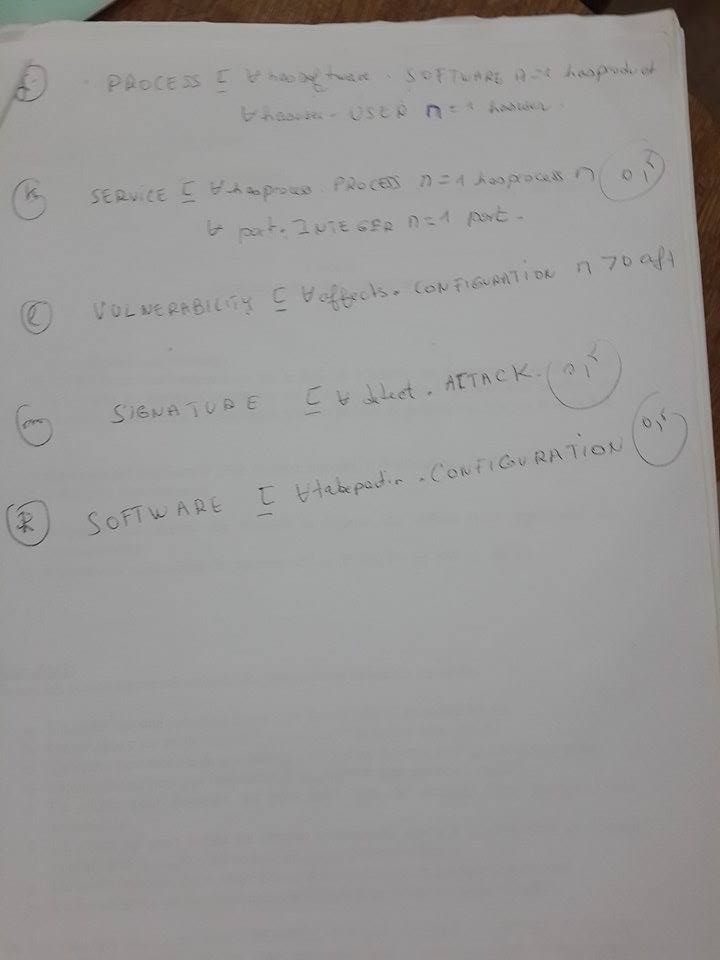 PROCESS ⊑ ∀ hassoftware . SOFTWARE ⊓ =1 hasproduct
∀ hasuser . USER ⊓ =1 hasuser .
SERVICE ⊑ ∀ hasprocess . PROCESS ⊓ =1 hasprocess ⊓
∀ port . INTEGER ⊓ =1 port .
VULNERABILITY ⊑ ∀ affects . CONFIGURATION ⊓ >0 aft
SIGNATURE ⊑ ∀ detect . ATTACK .
SOFTWARE ⊑ ∀ takepartin . CONFIGURATION